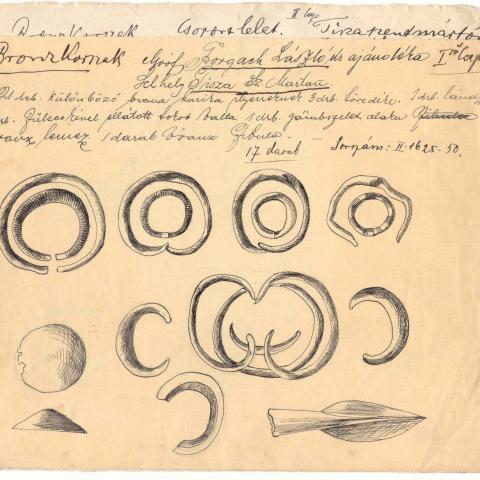 Bronz Korszak Csoport lelet. II lap Tiszaszentmárton
Bronz Korszak gróf Forgach László úr ajándéka I ső lap
Lelhely Tisza Sz. Martan
drb. különböző bronz karika 3 drb. töredék. 1 drb. landz
rb. Fülecskével ellátott tokos balta 1 drb. gömbszelet alaku
ronz lemez. 1 darab Bronz Fibula. -
17 darab - Sorszám: II-1625-50.